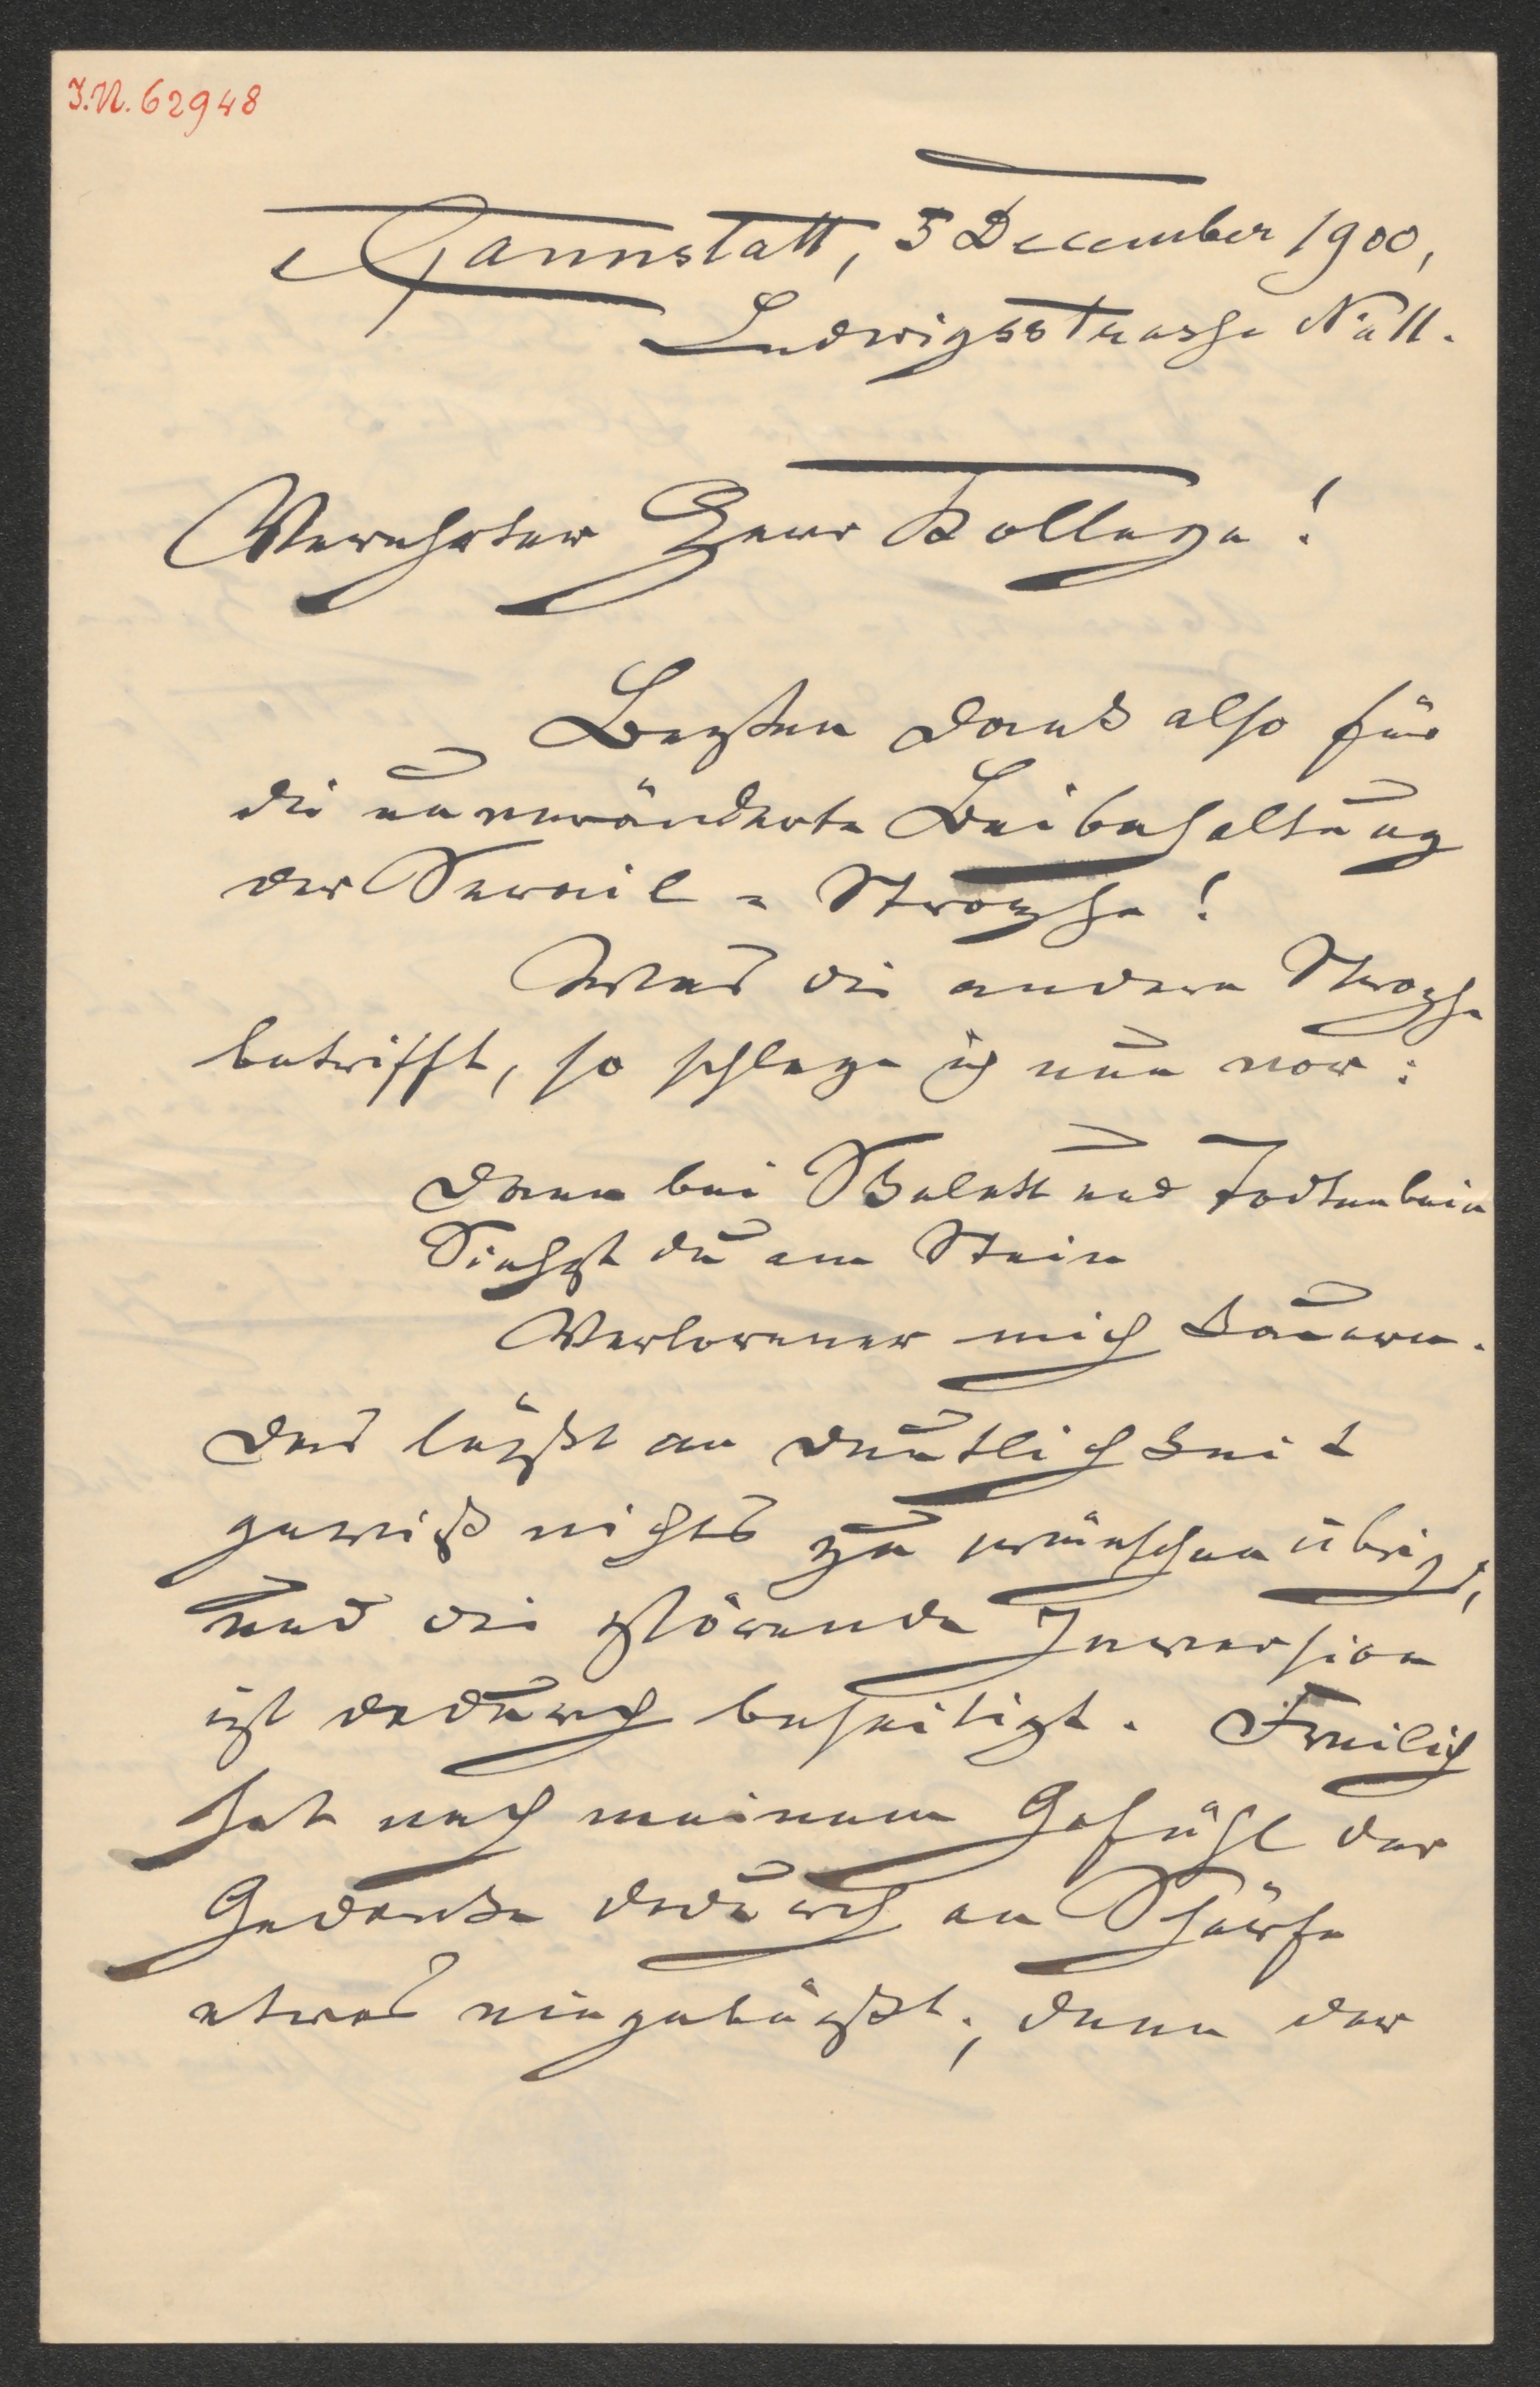 J.N. 62948
Cannstatt, 5 December 1900,
Ludwigsstrasse No 11.
Verehrter Herr Kollege!
Besten Dank also für
die unveränderte Beibehaltung
der Serail-Strophe!
Was die andere Strophe
betrifft, so schlage ich nun vor:
Dann bei Skelett und Todtenbein
Siehst du am Stein
Verlorener mich kauern.
Das läßt an Deutlichkeit
gewiß nichts zu wünschen übrig,
und die störende Inversion
ist dadurch beseitigt. Freilich
hat nach meinem Gefühl der
Gedanke dadurch an Schärfe
etwas eingebüßt; denn der